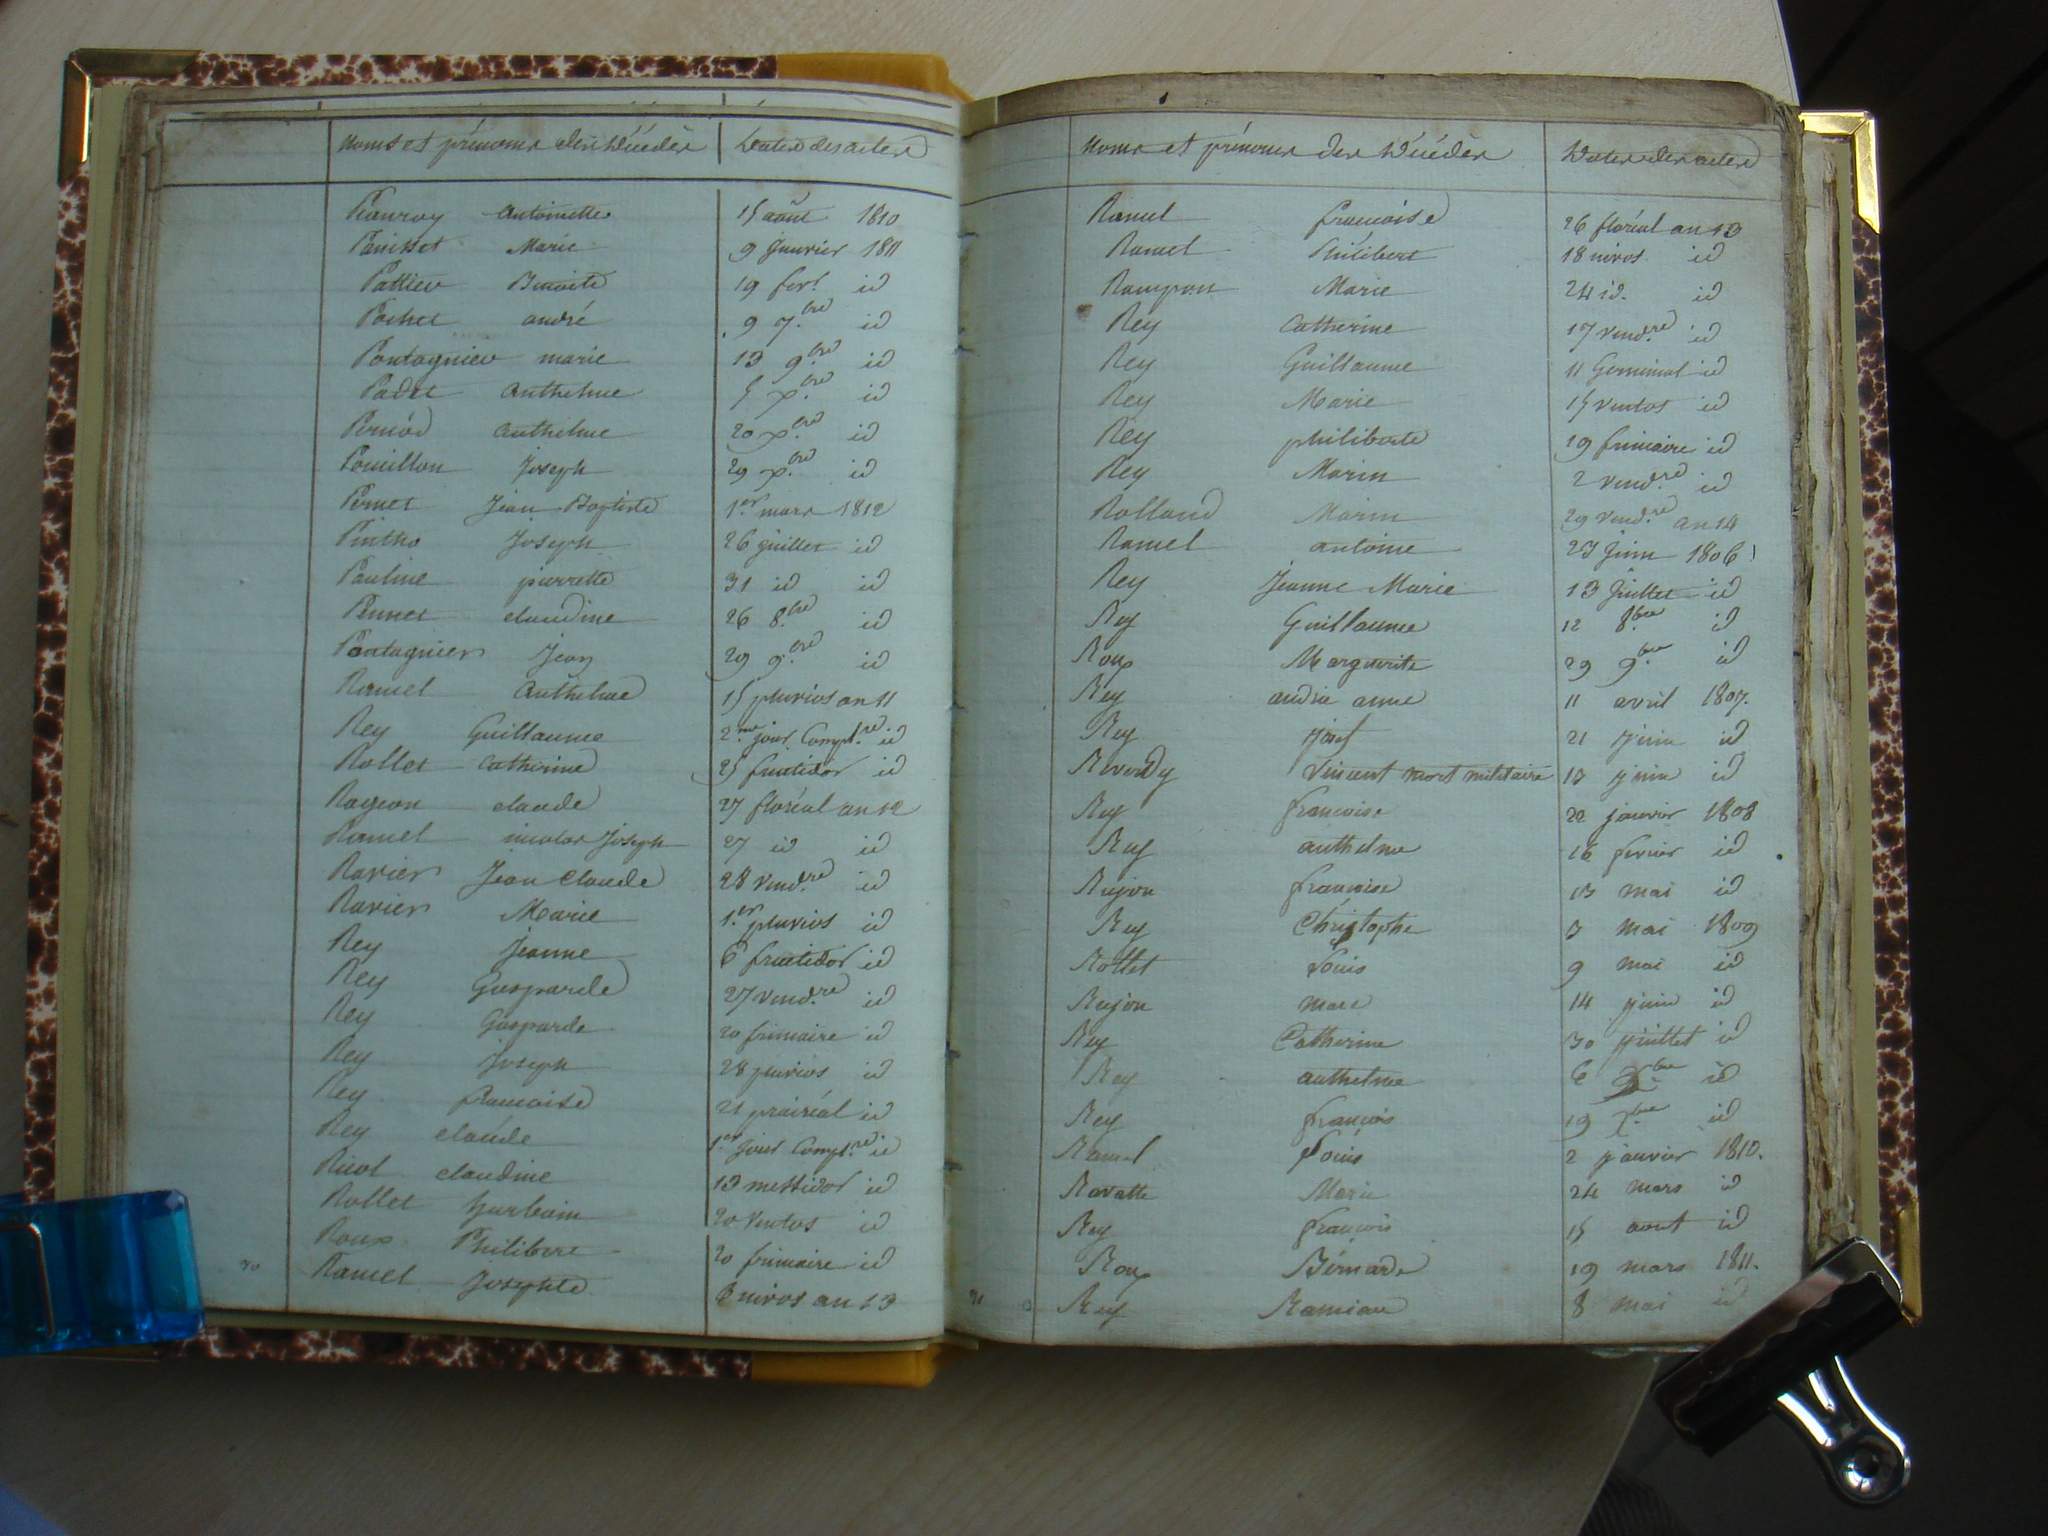 Noms et prénoms des Décédés Dates des actes
Antoinette 15 août 1810
Marie 9 janvier 1811
Benoite 19 fevr. id
Pochet andré 9 7.bre id
Pontagnieu marie 13 9.bre id
Padet anthelme 5 x.bre id
anthelme 20 x.bre id
Pouillon Joseph 29 x.bre id
Pernet Jean Baptiste 1.er mars 1812
Pintho Joseph 26 juillet id
Pauline pierrette 31 id id
Pernet claudine 26 8.bre id
Pontagnier Jean 29 9.bre id
Ramel Anthelme 15 pluvios an 11
Rey Guillaume 2.me jour Compl.re id
Rollet Catherine 25 fructidor id
Rageon claude 27 floréal an 12
Ramel nicolas Joseph 27 id id
Ravier Jean Claude 28 Vend.re id
Ravier Marie 1.er pluvios id
Rey Jeanne 6 fructidor id
Rey Gasparde 27 Vend.re id
Rey Gasparde 20 frimaire id
Rey Joseph 28 pluvios id
Rey francoise 21 prairéal id
Rey claude 1.er jour Compl.re id
Ricot claudine 13 messidor id
Rollet hurbain 20 Ventos id
Roux Philibert 20 frimaire id
30 Ramel Josephte 6 nivos an 13
Noms et prénoms des Décédés Dates des actes
Ramel francoise 26 floréal an 13
Ramel Philibert 18 nivos id
Rampon Marie 24 id. id
Rey Catherine 17 vend.re id
Rey Guillaume 11 Germinal id
Rey Marie 15 ventos id
Rey philiberte 19 frimaire id
Rey Marin 2 vend.re id
Rolland Marin 29 Vend.re an 14
Ramel antoine 23 juin 1806
Rey Jeanne Marie 13 Juillet id
Rey Guillaume 12 8.bre id
Roux Marguerite 29 9.bre id
Rey andré anne 11 avril 1807.
Rey josef 21 juin id
Reverdy Vincent mort militaire 13 juin id
Rey francoise 22 janvier 1808
Rey anthelme 16 fevrier id
Rujon francoise 13 mai id
Rey Christophe 3 mai 1809
Rollet Louis 9 mai id
Rujon marc 14 juin id
Rey Catherine 30 juillet id
Rey anthelme 6 id
Rey françois 19 x.bre id
Ramel Louis 2 janvier 1810.
Ravatte Marie 24 mars id
Rey françois 15 aout id
Roux Bérnard 19 mars 1811.
31 Rey 8 mai id